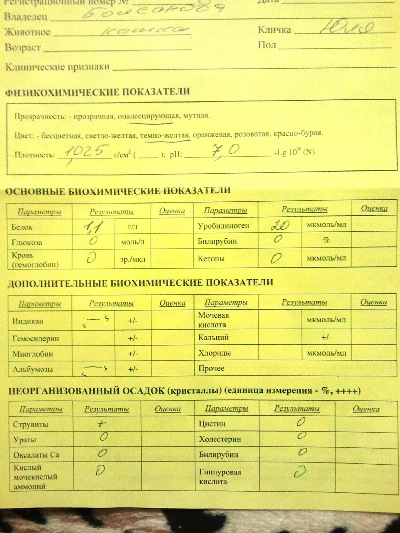 Регистрационный номер № Дата
Владелец
Животное кошка Кличка Юля
Возраст Пол
Клинические признаки
ФИЗИКОХИМИЧЕСКИЕ ПОКАЗАТЕЛИ
Прозрачность: - прозрачная, опалесцирующая, мутная.
Цвет: - бесцветная, светло-желтая, темно-желтая, оранжевая, розоватая, красно-бурая.
Плотность: 1,025 г/см² ( ); pH: 7,0 -Lg 10ⁿ (N)
ОСНОВНЫЕ БИОХИМИЧЕСКИЕ ПОКАЗАТЕЛИ
Параметры Результаты Оценка Параметры Результаты Оценка
Белок 1,1 г/л Уробилиноген 20 мкмоль/мл
Глюкоза 0 моль/л Билирубин 0 %
Кровь (гемоглобин) 0 эр./мкл Кетоны 0 мкмоль/мл
ДОПОЛНИТЕЛЬНЫЕ БИОХИМИЧЕСКИЕ ПОКАЗАТЕЛИ
Параметры Результаты Оценка Параметры Результаты Оценка
Индикан - +/- Мочевая кислота мкмоль/мл
Гемосидерин +/- Кальций +/-
Миоглобин +/- Хлориды мкмоль/мл
Альбумозы - +/- Прочее
НЕОРГАНИЗОВАННЫЙ ОСАДОК (кристаллы) (единица измерения - %, ++++)
Параметры Результаты Оценка Параметры Результаты Оценка
Струвиты + Цистин 0
Ураты 0 Холестерин 0
Оксалаты Ca 0 Билирубин 0
Кислый мочекислый аммоний 0 Гиппуровая кислота 0